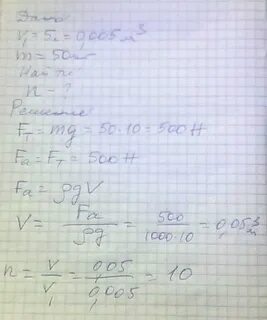 Дано
V₁ = 5л = 0,005 м³
m = 50кг
Найти
n - ?
Решение:
Fт = mg = 50·10 = 500 Н
Fа = Fт = 500 Н
Fа = ρgV
V = Fа/ρg = 500/1000·10 = 0,05 м³
n = V/V₁ = 0,05/0,005 = 10